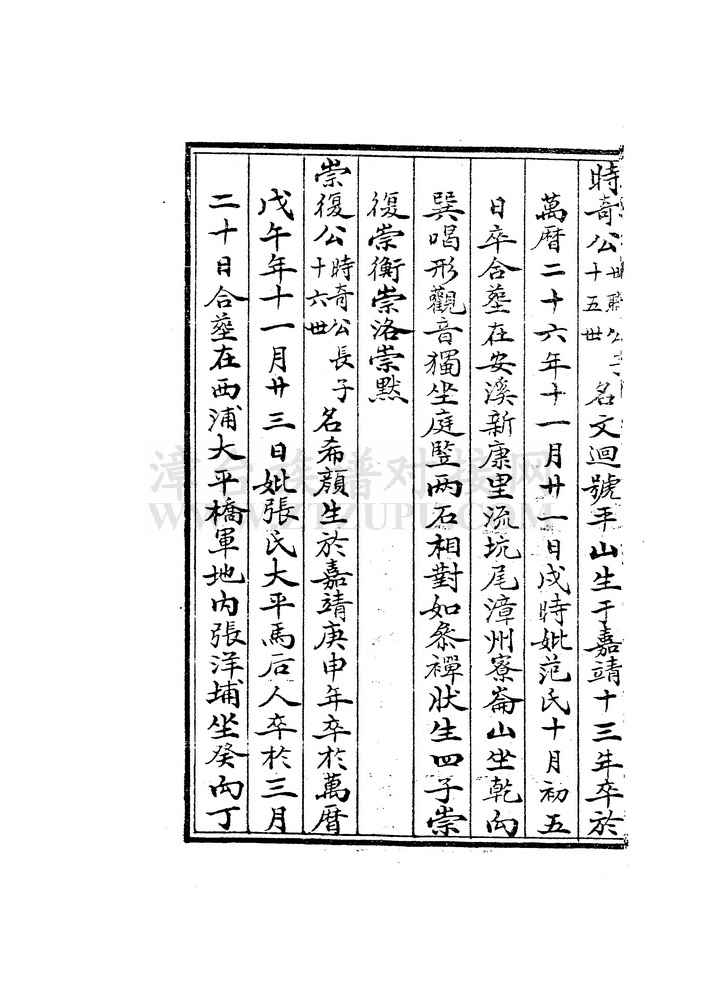 時奇公 十五世 名文迴號平山生于嘉靖十三年卒於
萬曆二十六年十一月廿一日戌時妣范氏十月初五
日卒合塟在安溪新康里流坑尾漳州寮崙山坐乾向
巽喝形觀音獨坐庭豎两石相對如叅禪狀生四子崇
復崇衡崇洛崇默
崇復公 時奇公長子 十六世 名希顏生於嘉靖庚申年卒於萬曆
戊午年十一月廿三日妣張氏大平馬后人卒於三月
二十日合塟在西浦大平橋軍地内張洋埔坐癸向丁
漳台族谱对接网
WWW.ZTZUPU.COM